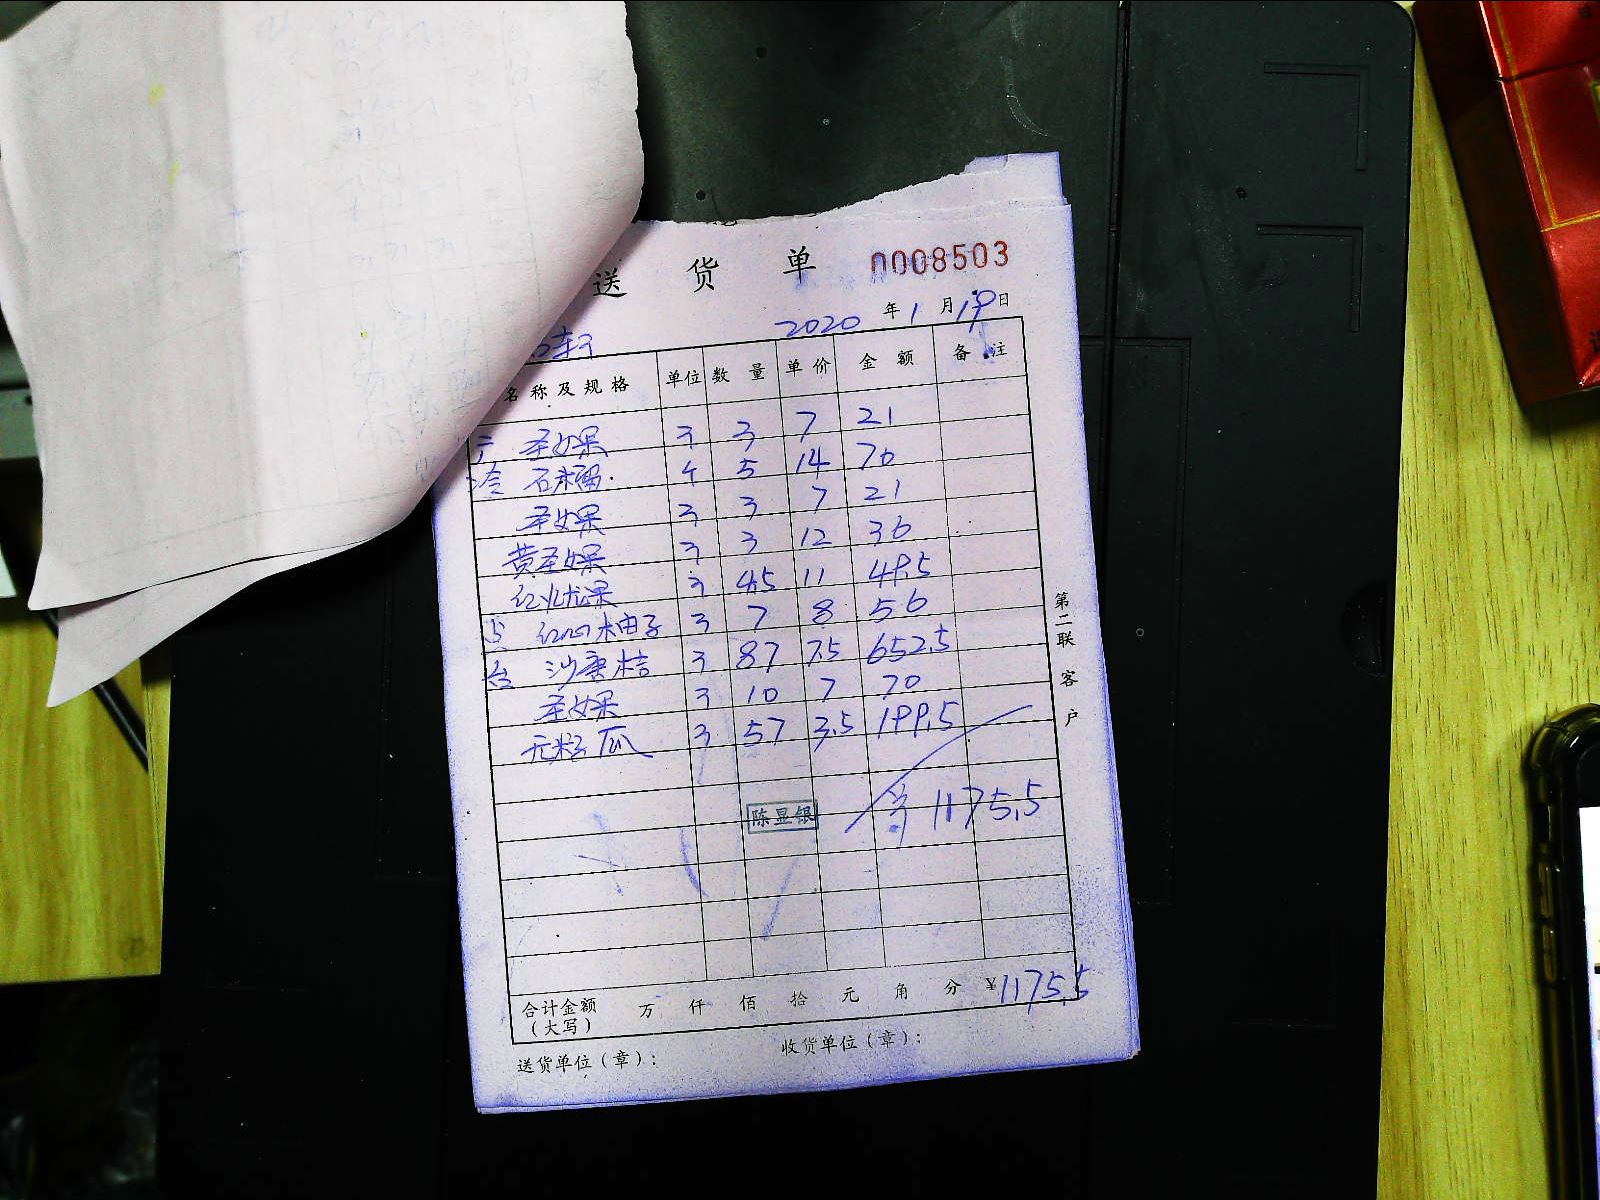 送货单 0008503
2020年1月19日
名称及规格 单位 数量 单价 金额 备注
圣女果 3 3 7 21
冷 石榴 4 5 14 70
圣女果 3 3 7 21
黄圣女果 3 3 12 36
红火龙果 3 4.5 11 49.5
红心柚子 3 7 8 56
台 沙唐桔 3 87 7.5 652.5
圣女果 3 10 7 70
无籽瓜 3 57 3.5 199.5
陈显银
1175.5
合计金额 万 仟 佰 拾 元 角 分 ¥1175.5
(大写)
送货单位(章): 收货单位(章):
第二联 客户